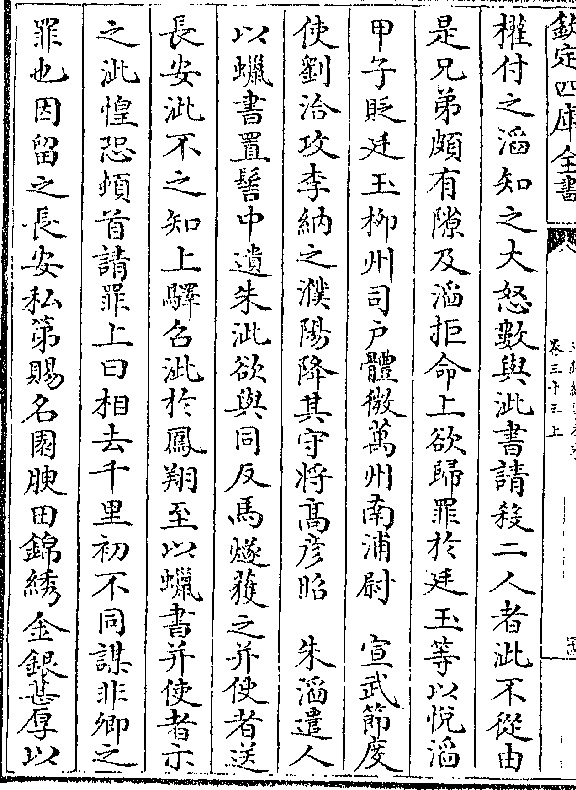 欽定四庫全書
卷三十三上
權付之滔知之大怒數與泚書請殺二人者泚不從由
是兄弟頗有隙及滔拒命上欲歸罪於廷玉等以悦滔
甲子貶廷玉柳州司户體微萬州南浦尉　宣武節度
使劉洽攻李納之濮陽降其守將髙彦昭　朱滔遣人
以蠟書置髻中遺朱泚欲與同反馬燧獲之并使者送
長安泚不之知上驛召泚於鳳翔至以蠟書并使者示
之泚惶恐頓首請罪上曰相去千里初不同謀非卿之
罪也因留之長安私第賜名園腴田錦綉金銀甚厚以